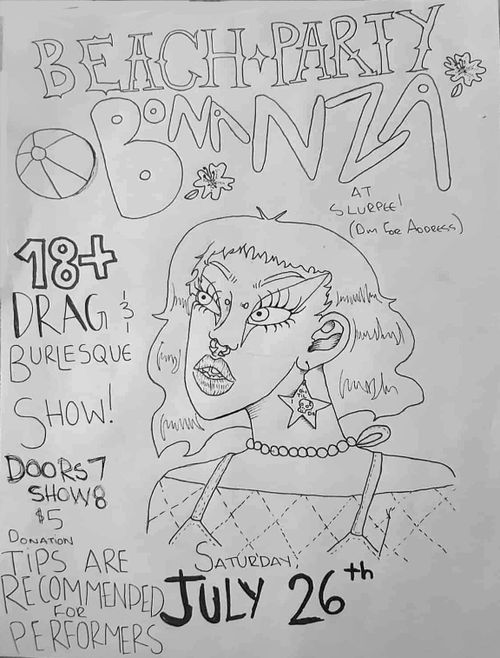 BEACH PARTY
BONANZA
AT
SLURPEE!
(DM FOR ADDRESS)
18+
DRAG &
BURLESQUE
SHOW!
DOORS 7
SHOW 8
$5
DONATION
TIPS ARE
RECOMMENDED
FOR
PERFORMERS
SATURDAY,
JULY 26th